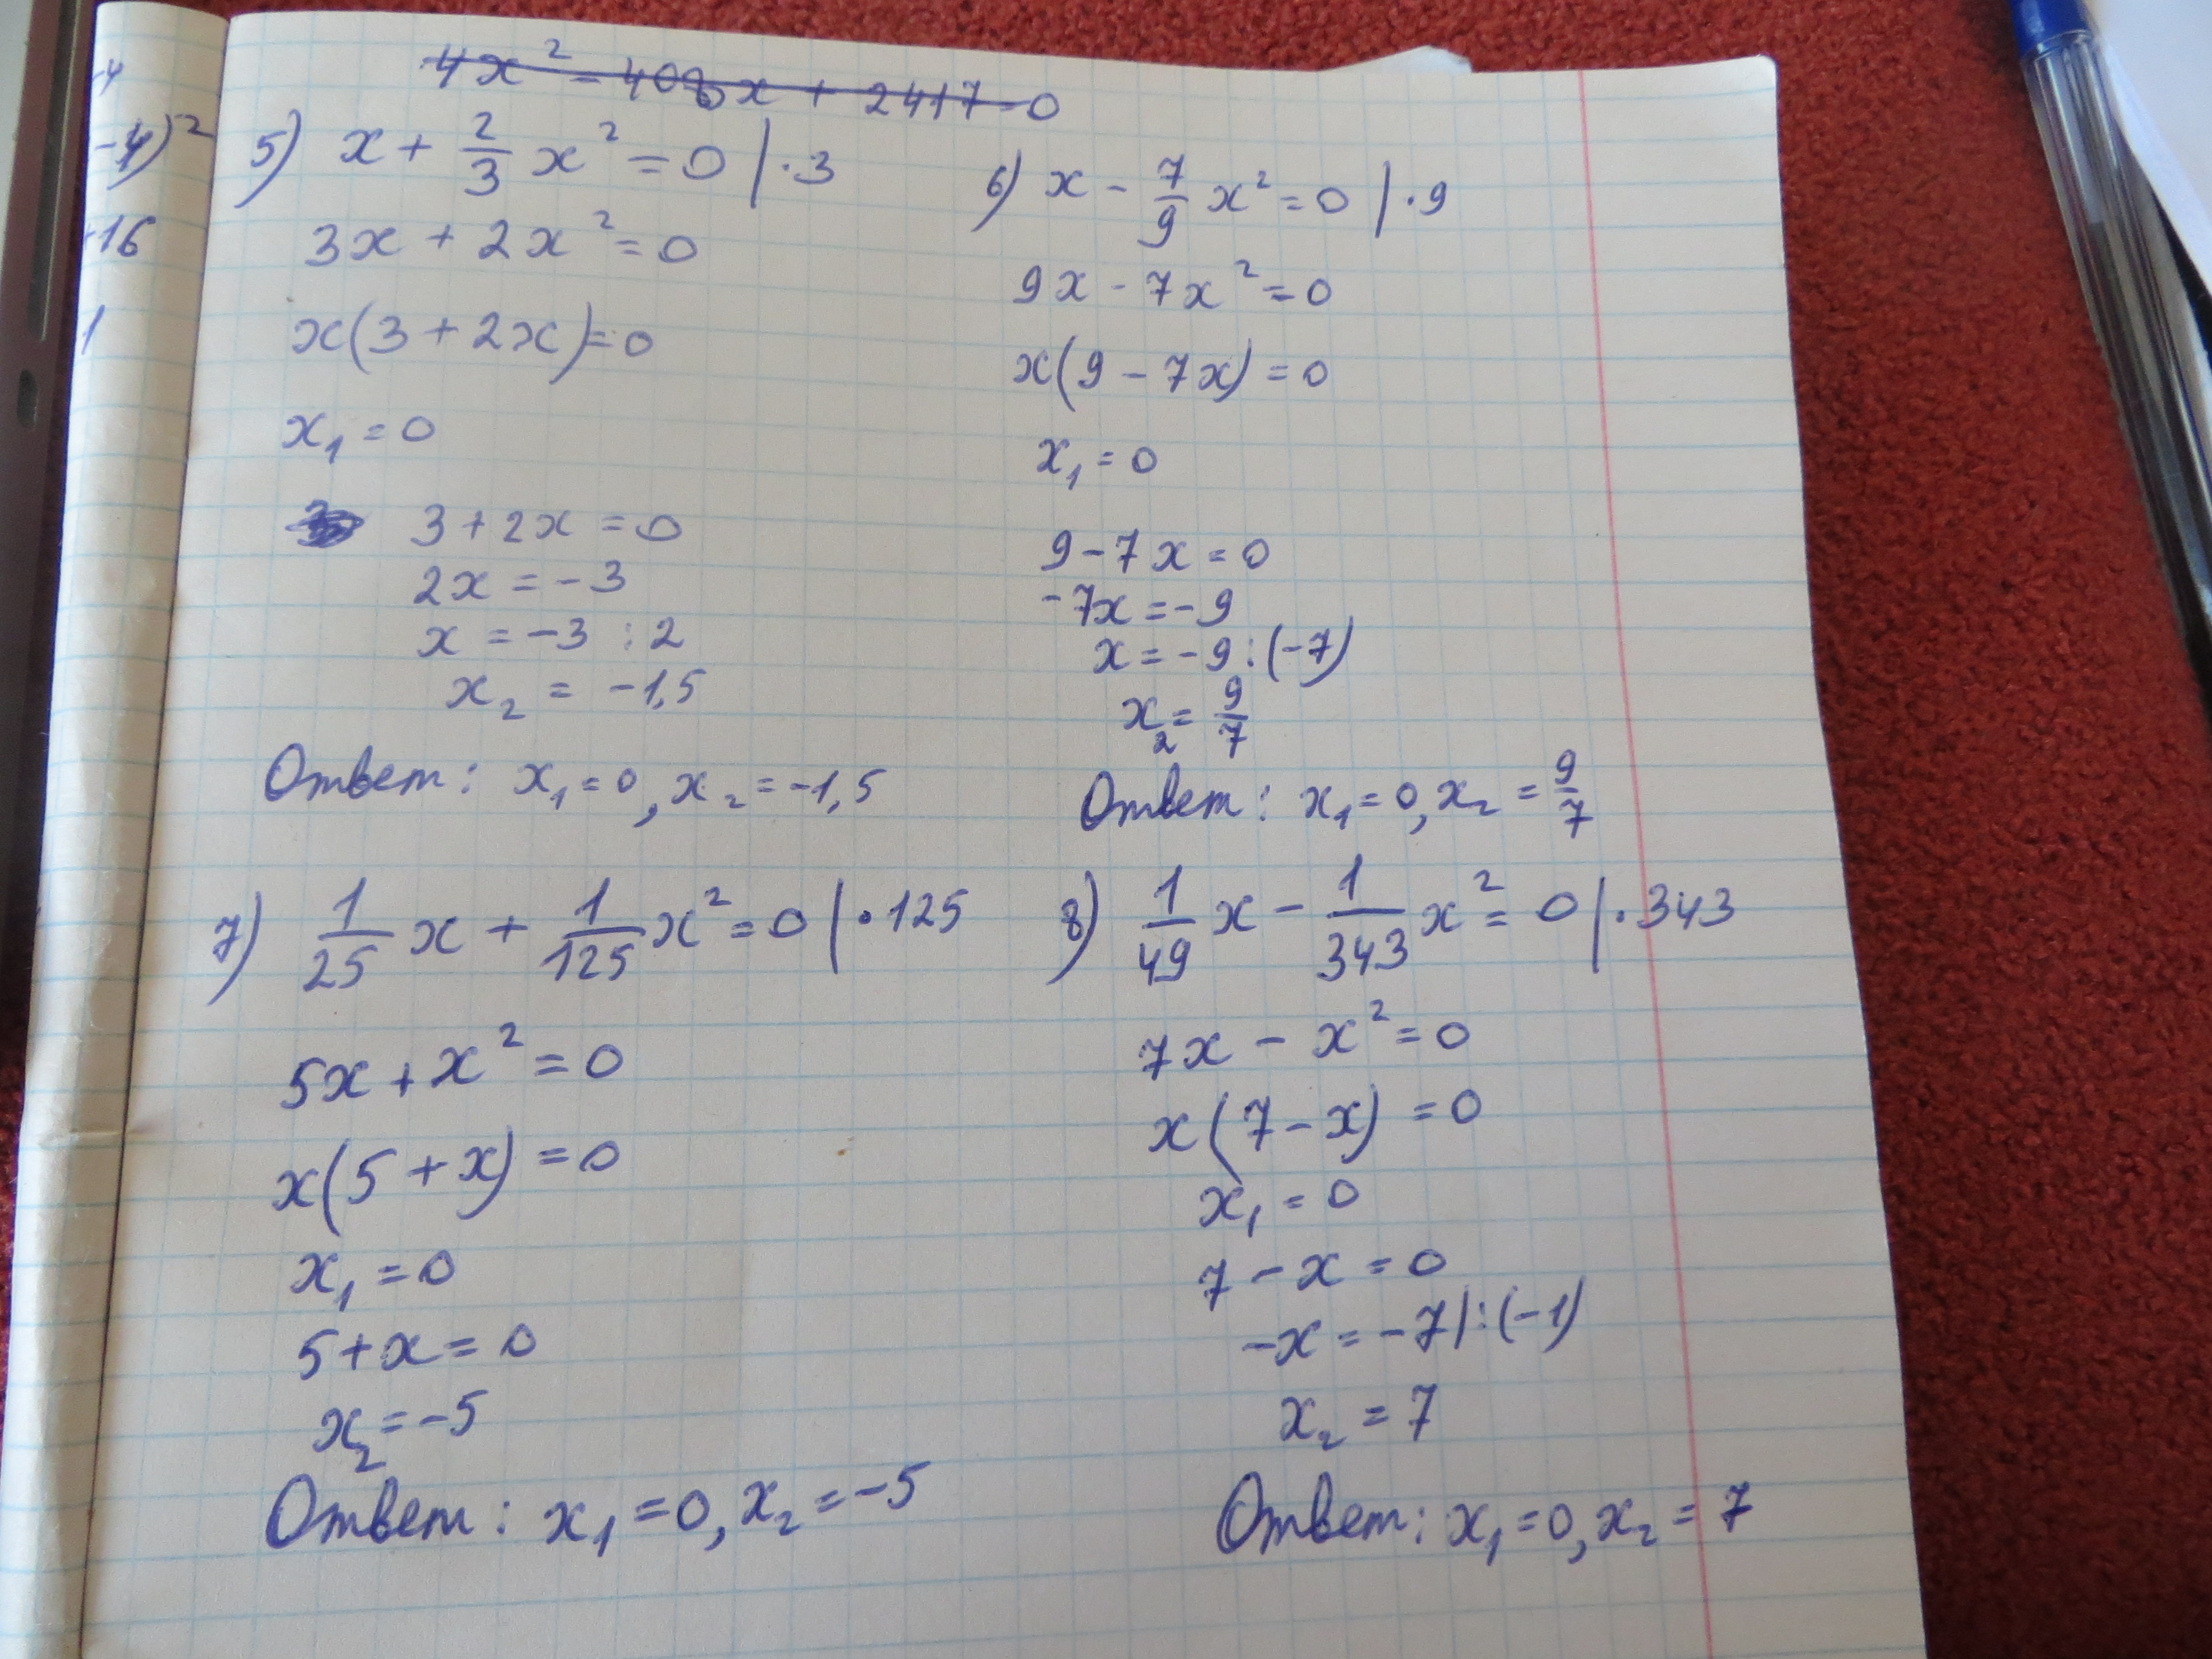 4x² = 408x + 2417 = 0
5) x + 2/3 x² = 0 | · 3
3x + 2x² = 0
x(3 + 2x) = 0
x₁ = 0
3 + 2x = 0
2x = -3
x = -3 : 2
x₂ = -1,5
Ответ: x₁ = 0, x₂ = -1,5
6) x - 7/9 x² = 0 | · 9
9x - 7x² = 0
x(9 - 7x) = 0
x₁ = 0
9 - 7x = 0
-7x = -9
x = -9 : (-7)
x₂ = 9/7
Ответ: x₁ = 0, x₂ = 9/7
7) 1/25 x + 1/125 x² = 0 | · 125
5x + x² = 0
x(5 + x) = 0
x₁ = 0
5 + x = 0
x₂ = -5
Ответ: x₁ = 0, x₂ = -5
8) 1/49 x - 1/343 x² = 0 | · 343
7x - x² = 0
x(7 - x) = 0
x₁ = 0
7 - x = 0
-x = -7 | : (-1)
x₂ = 7
Ответ: x₁ = 0, x₂ = 7
-4
-4)²
+16
1